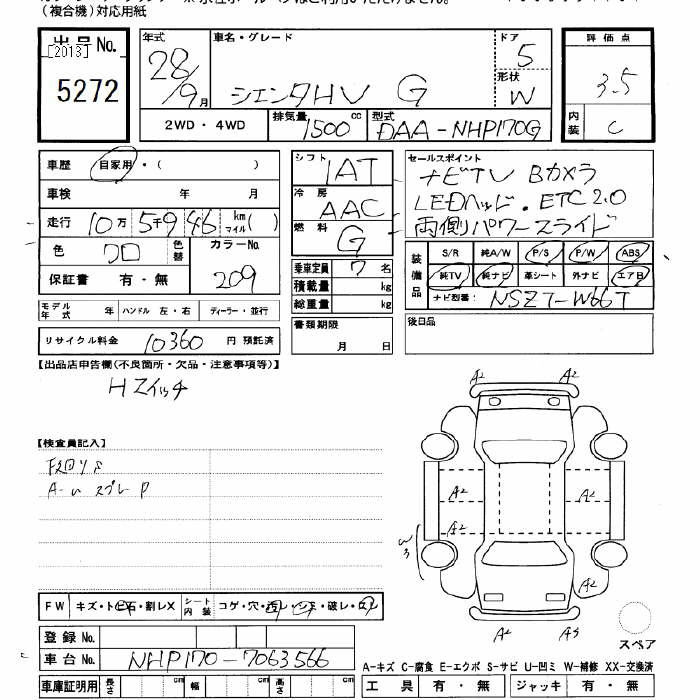 (複合機)対応用紙
出品No.
[2013]
5272
年式
28/9月
車名・グレード
シエンタHV G
ドア
5
形状
W
評価点
3.5
内装
C
2WD・4WD
排気量
1500cc
型式
DAA-NHP170G
車歴 自家用・( )
車検 年 月
走行 10万5千946 km マイル( )
色 クロ 色替 カラーNo.
209
保証書 有・無
モデル年式 年 ハンドル 左・右 ディーラー・並行
リサイクル料金 10360 円 預託済
シフト
1AT
冷房
AAC
燃料
G
乗車定員 7名
積載量 kg
総重量 kg
書類期限
月 日
セールスポイント
ナビTV Bカメラ
LEDヘッド.ETC2.0
両側パワースライド
装備品
S/R 純A/W P/S P/W ABS
純TV 純ナビ 革シート 外ナビ エアB
ナビ型番: NSZT-W66T
後日品
【出品店申告欄(不良箇所・欠品・注意事項等)】
Hスイッチ
【検査員記入】
A2 A2
A2 A2
A2
W3
A2 A3
スペア
FW キズ・トビ石・割レX シート内装 コゲ・穴・汚レ・シミ・破レ・スレ
登録No.
車台No. NHP170-7063566
車庫証明用 長さ cm 幅 cm 高さ cm
A-キズ C-腐食 E-エクボ S-サビ U-凹ミ W-補修 XX-交換済
工具 有・無 ジャッキ 有・無